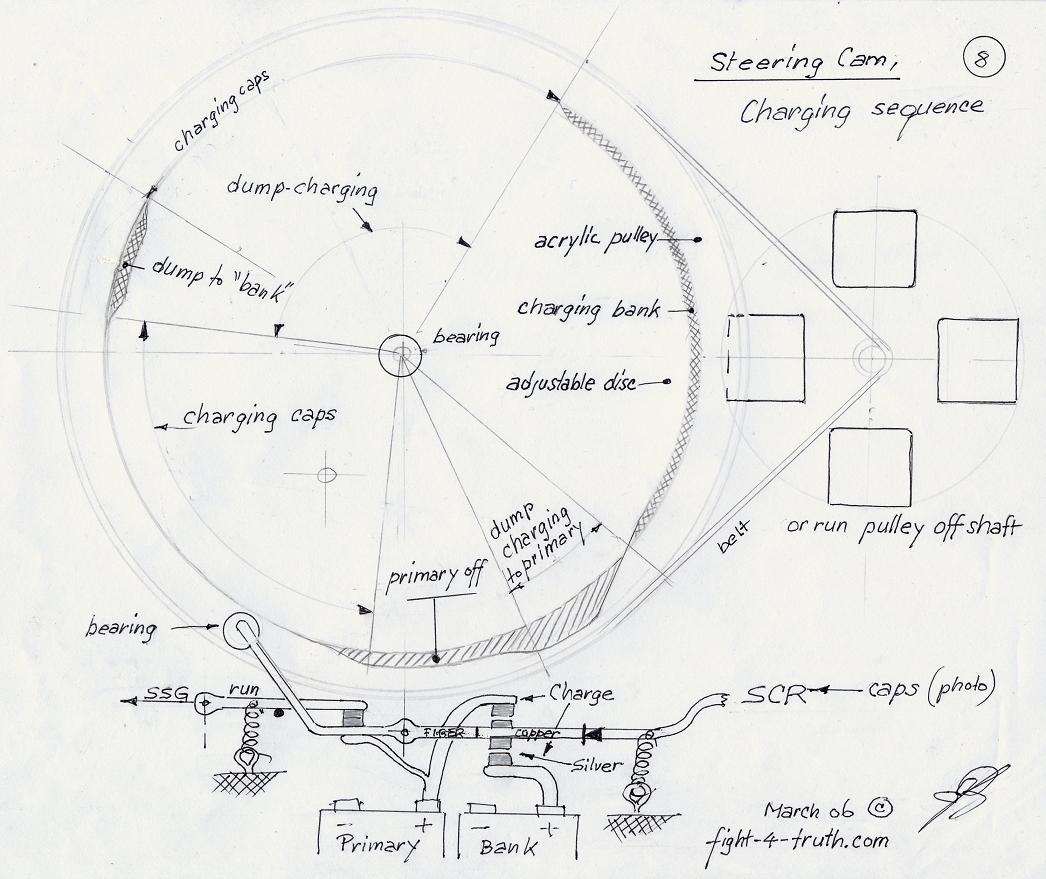 Steering Cam,
8
Charging sequence
charging caps
dump-charging
acrylic pulley
dump to "bank"
charging bank
bearing
adjustable disc
charging caps
dump
charging
to primary
belt
or run pulley off shaft
primary off
bearing
SSG
run
Charge
SCR
caps (photo)
FIBER
copper
Silver
March 06 ©
fight-4-truth.com
- +
Primary
- +
Bank